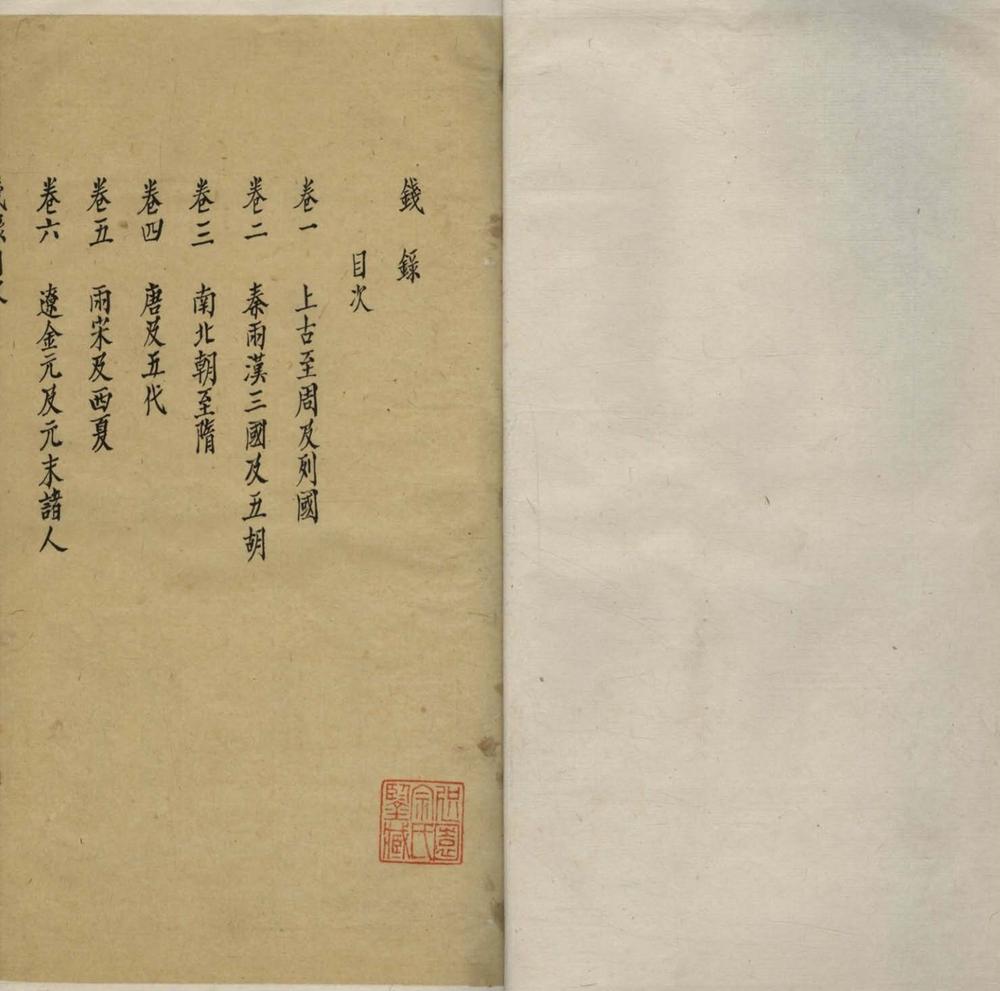 錢錄
目次
卷一 上古至周及列國
卷二 秦兩漢三國及五胡
卷三 南北朝至隋
卷四 唐及五代
卷五 兩宋及西夏
卷六 遼金元及元末諸人
宗氏
鑒藏